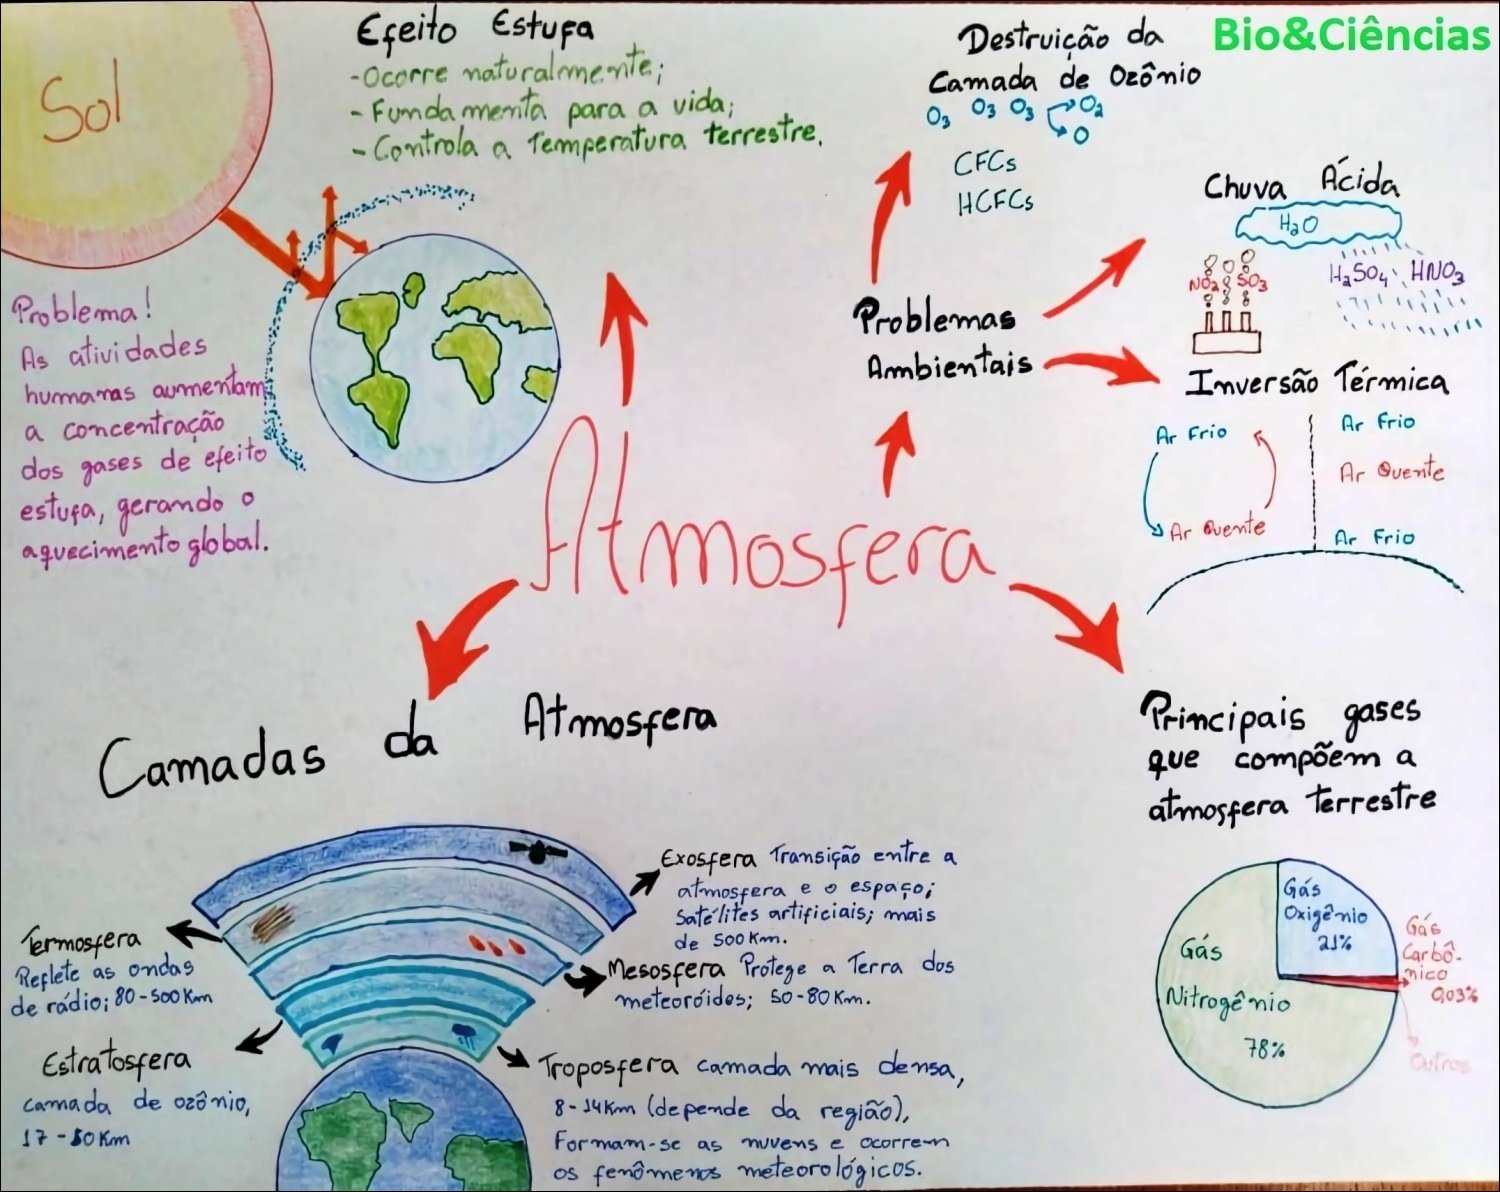 Bio&Ciências
Sol
Efeito Estufa
-Ocorre naturalmente;
-Fundamenta para a vida;
-Controla a Temperatura terrestre.
Problema!
As atividades
humanas aumentam
a concentração
dos gases de efeito
estufa, gerando o
aquecimento global.
Destruição da
Camada de Ozônio
O₃ O₃ O₃ O₂
O
CFCs
HCFCs
Problemas
Ambientais
Chuva Ácida
H₂O
NO₂ SO₃
H₂SO₄ HNO₃
Inversão Térmica
Ar Frio
Ar Quente
Ar Frio
Ar Quente
Ar Frio
Atmosfera
Camadas da Atmosfera
Exosfera Transição entre a
atmosfera e o espaço;
Satélites artificiais; mais
de 500Km.
Termosfera
Reflete as ondas
de rádio; 80-500Km
Mesosfera Protege a Terra dos
meteoróides; 50-80Km.
Estratosfera
camada de ozônio,
17-50Km
Troposfera camada mais densa,
8-14Km (depende da região),
Formam-se as nuvens e ocorrem
os fenômenos meteorológicos.
Principais gases
que compõem a
atmosfera terrestre
Gás
Oxigênio
21%
Gás
Nitrogênio
78%
Gás
Carbô-
nico
0,03%
Outros